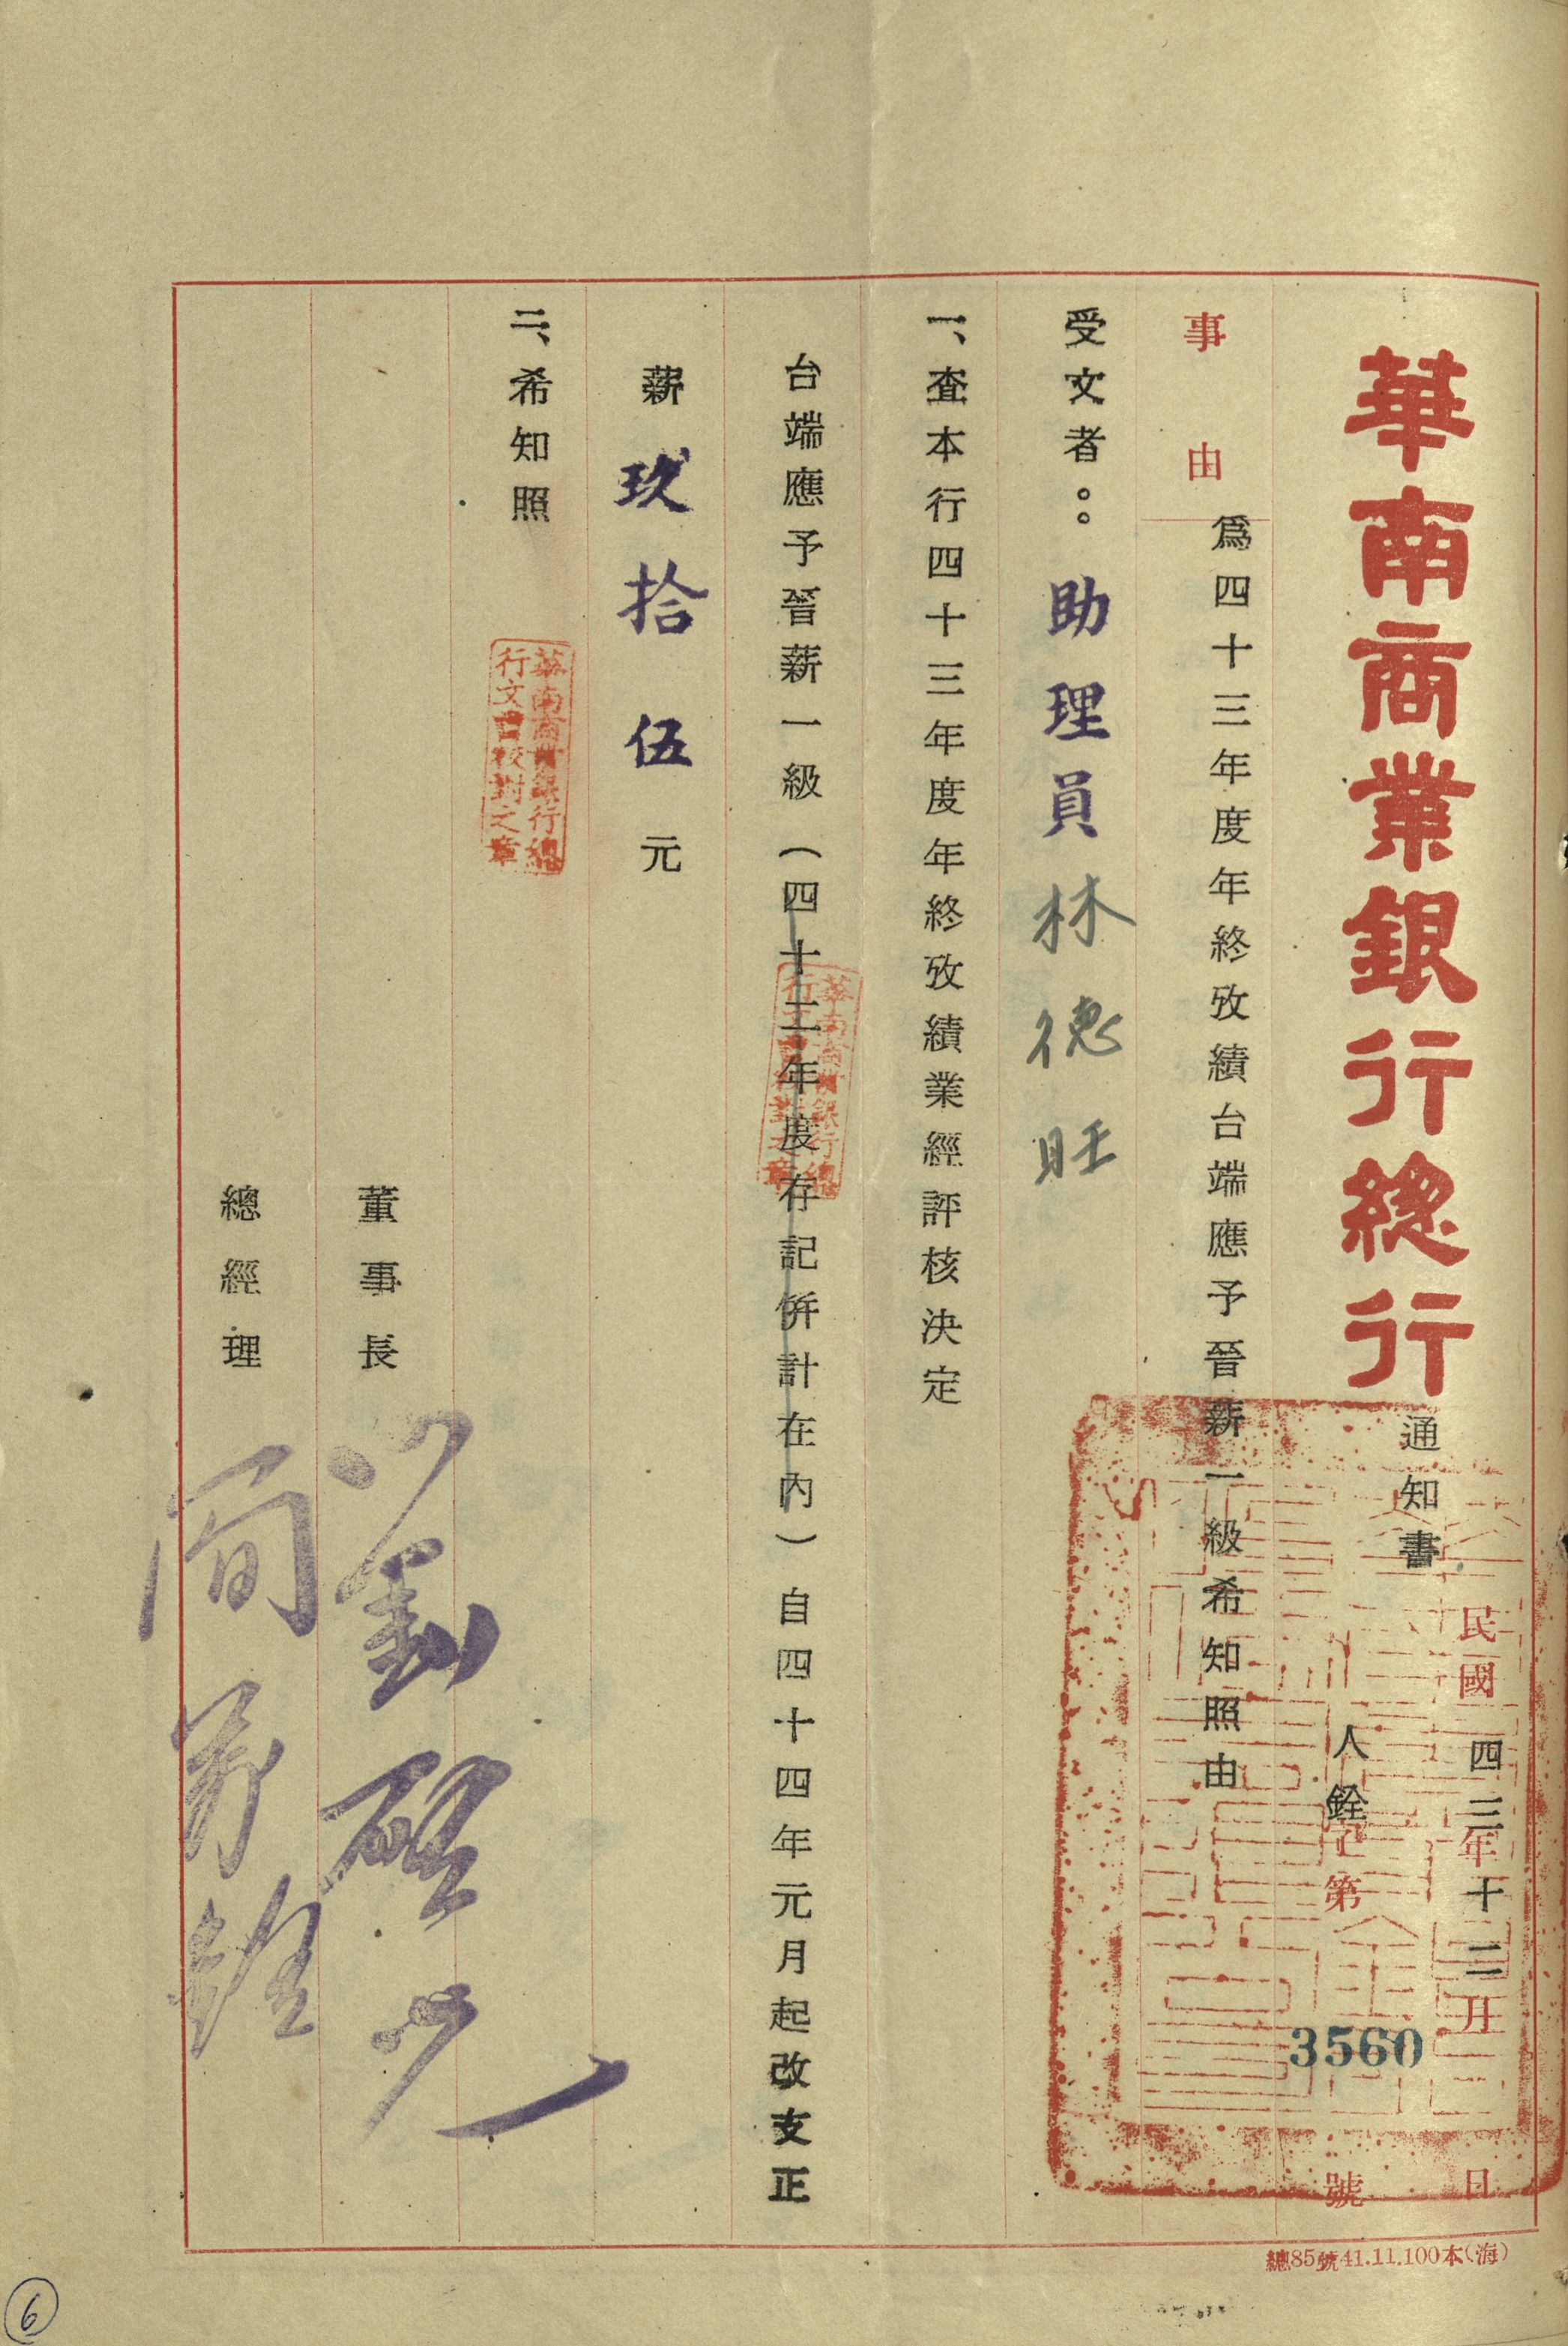 華南商業銀行總行
通知書
民國四三年十二月 日
人銓字第3560號
事由
爲四十三年度年終攷績台端應予晉薪一級希知照由
受文者：助理員林德旺
一、查本行四十三年度年終攷績業經評核決定
台端應予晉薪一級（四十二年度存記併計在內）自四十四年元月起改支正
薪玖拾伍元
二、希知照
華南商業銀行總行文書校對之章
華南商業銀行總行文書校對之章
董事長 劉啓光
總經理
總85號41.11.100本(海)
6